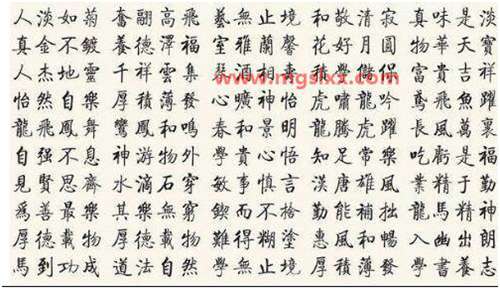 人淡如菊 奮翩高飛 藝無止境 和敬清寂 真味是淡
真金不鍍 養德澤福 室雅蘭馨 花好月圓 物華天寶
人杰地靈 千祥雲集 富貴吉祥
www.mgslxx.com
怡然自樂 厚積薄發 心曠神怡 虎嘯龍吟 鳶飛魚躍
龍飛鳳舞 鸞鳳和鳴 春和景明 龍騰虎躍 長風萬裏
自强不息 神游物外 學貴心悟 知足常樂 吃虧是福
見賢思齊 水滴石穿 敏事慎言 漢唐雄風 業精于勤
爲善最樂 其樂無窮 鍥而不捨 勤能補拙 龍馬精神
厚德載物 厚德載物 難得糊塗 惠風和暢 入幽出朗
馬到功成 道法自然 學無止境 厚積薄發 學書養志